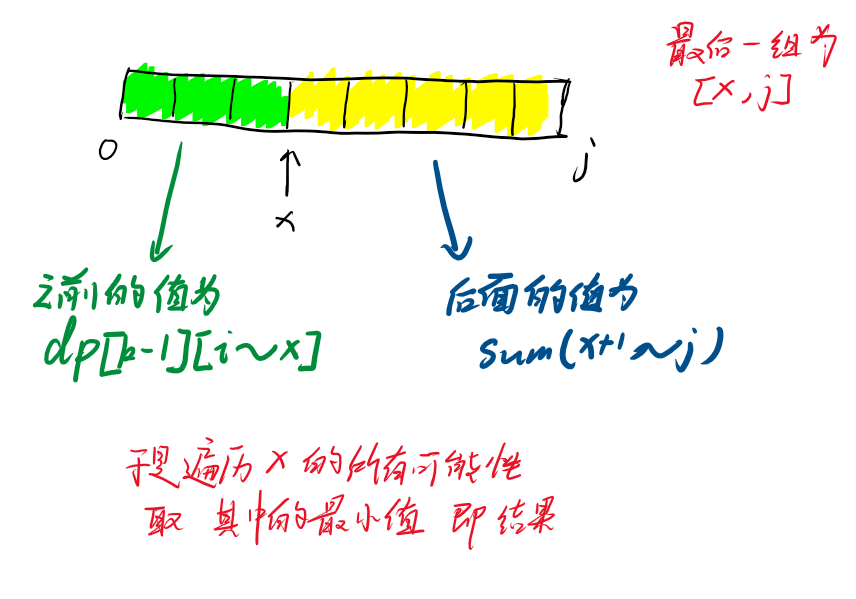 最后一组为
[x,j]
0
x
j
之前的值为
dp[k-1][i~x]
后面的值为
sum(x+1~j)
于是遍历x的所有可能性
取 其中的最小值 即结果